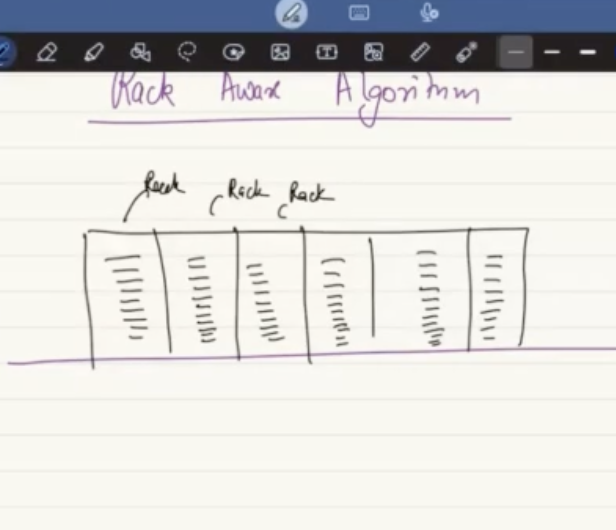 Rack Aware Algorithm
Rack Rack Rack